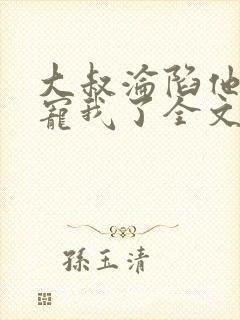 大叔淪陷他
寵我了全文
孫玉清